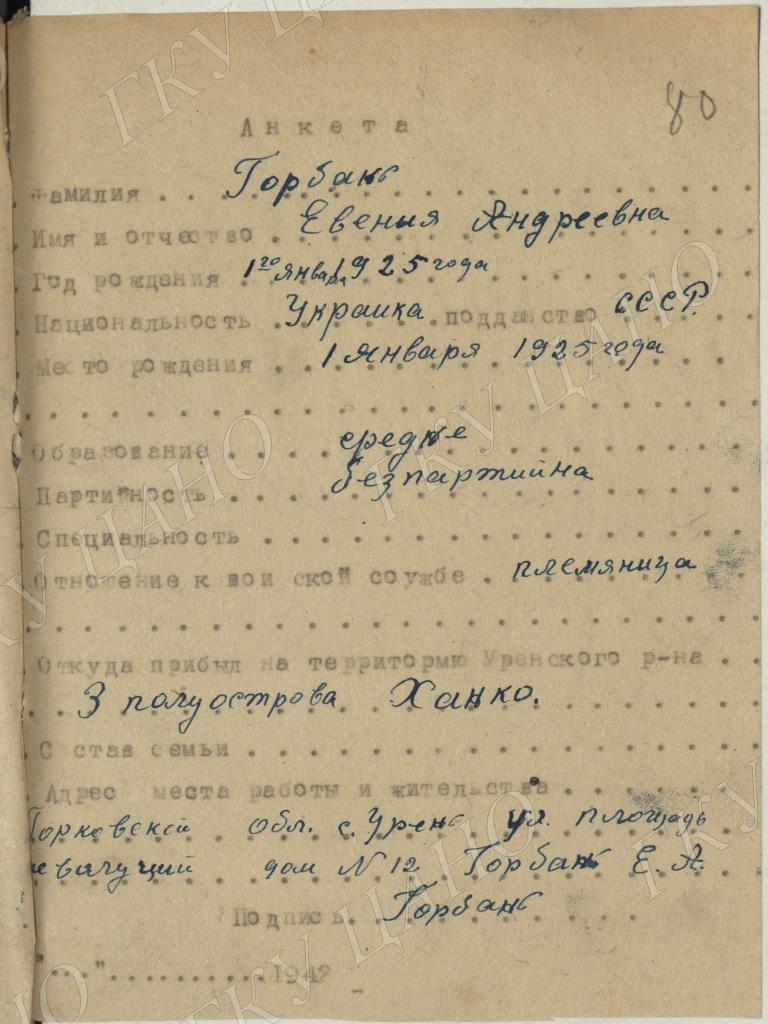 80
Анкета
Фамилия . . Горбань
Имя и отчество . Евения Андреевна
Год рождения . 1го января 1925 года
Национальность . Украика . подданство СССР.
Место рождения . 1 Января 1925 года
Образование . средне
Партийность . безпартийна
Специальность
Отношение к воинской соужбе . племяница
Откуда прибыл на территормю Уренского р-на
З полуострова Ханко.
Состав семьи
Адрес места работы и жительства
Горковской обл. с. Урень ул. площадь
дом N 12 Горбань Е. А.
Подпись. Горбань
"..."..........1942
ГКУ ЦАНО